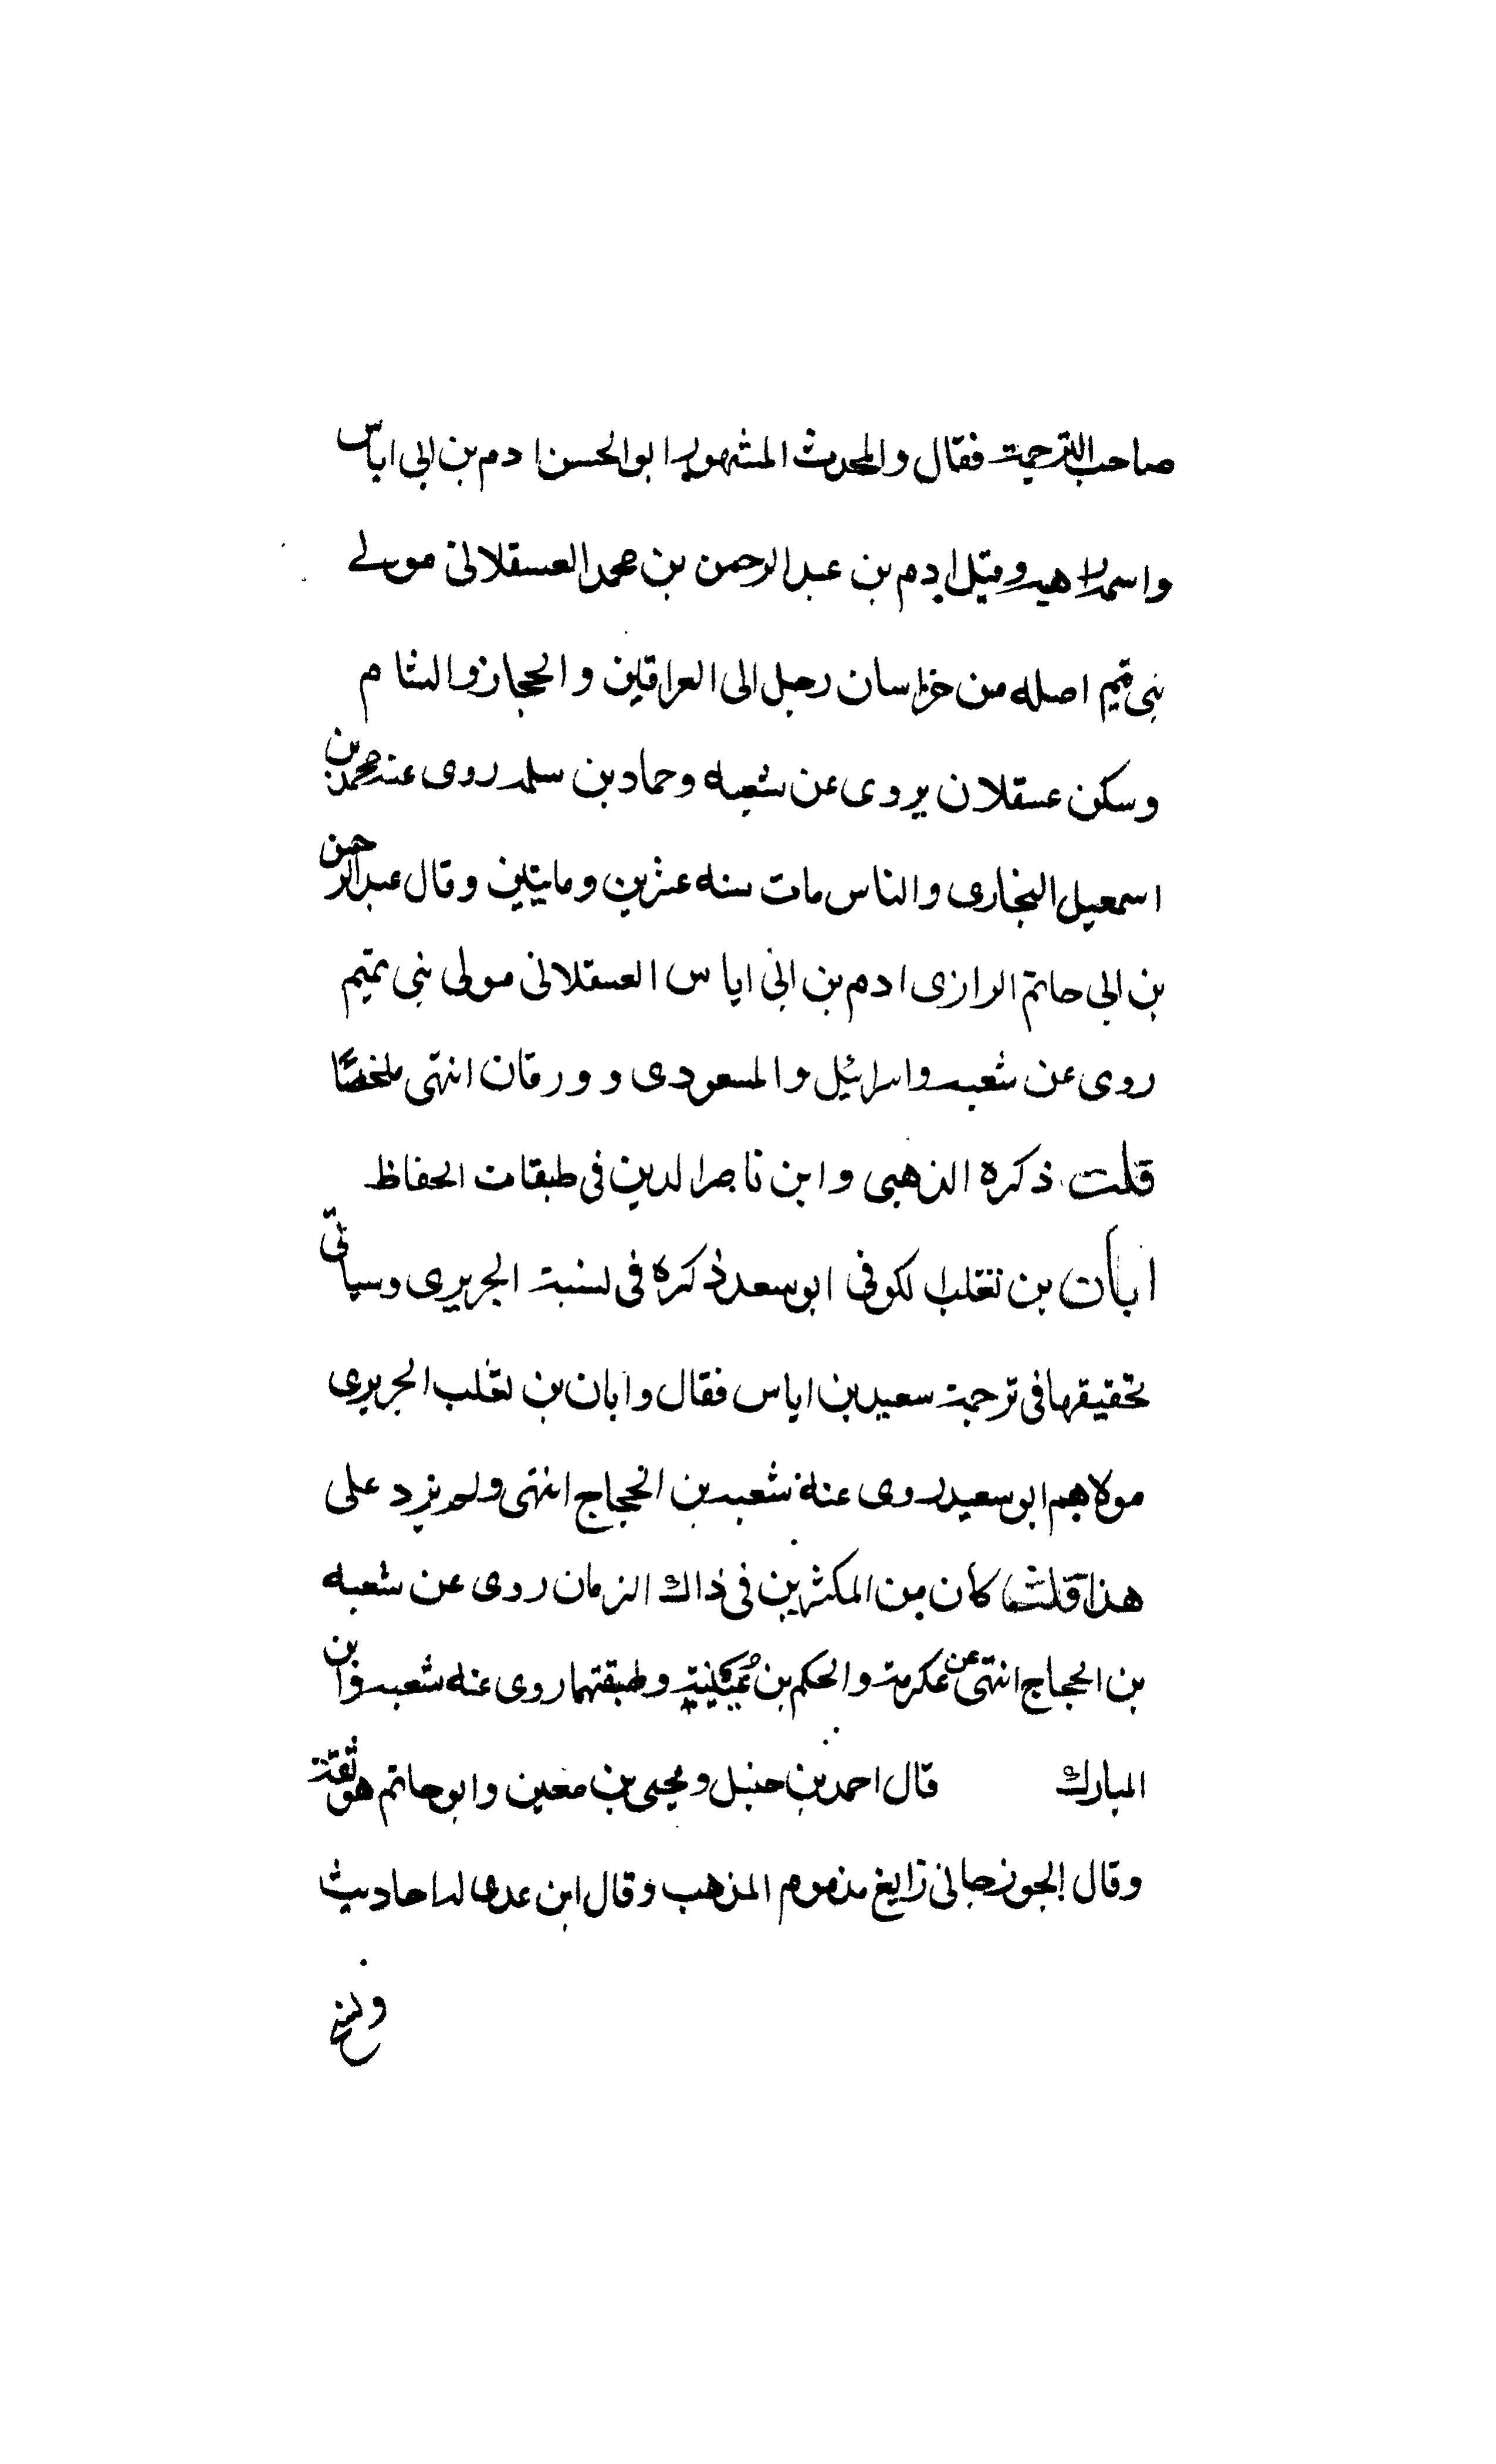 صاحب الترجمة فقال والمحدث المشهور ابو الحسن ادم بن ابي اياس
واسمه ناهية وقيل ادم بن عبد الرحمن بن محمد العسقلانى مولے
بنى تميم اصله من خراسان رحل الى العراقين والحجاز والشام
وسكن عسقلان يروى عن شعبه وحماد بن سلمه روى عنه محمد بن
اسمعيل البخارى والناس مات سنه عشرين ومايتين وقال عبد الرحمن
بن ابي حاتم الرازى ادم بن ابي اياس العسقلانى مولى بنى تميم
روى عن شعبه واسرائيل والمسعودى وورقان انتهى ملخصًا
قلت ذكره الذهبى وابن ناصر الدين فى طبقات الحفاظ
ابان بن تغلب لكوفى ابو سعد ذكره فى نسبة الجريرى وسياتى
تحقيقها فى ترجمة سعيد بن اياس فقال وابان بن تغلب الجريرى
مولاهم ابو سعيد روى عنه شعبه بن الحجاج انتهى ولم يزد على
هذا قلت كان من المكثرين فى ذاك الزمان روى عن شعبه
بن الحجاج انتهى عن عكرمة والحكم بن عُيَيْنية وطبقتهما روى عنه شعبه وابن
المبارك قال احمد بن حنبل ويحيى بن معين وابو حاتم هو ثقة
وقال الجوزجانى زايغ مذموم المذهب وقال ابن عدى له احاديث
ونسخ